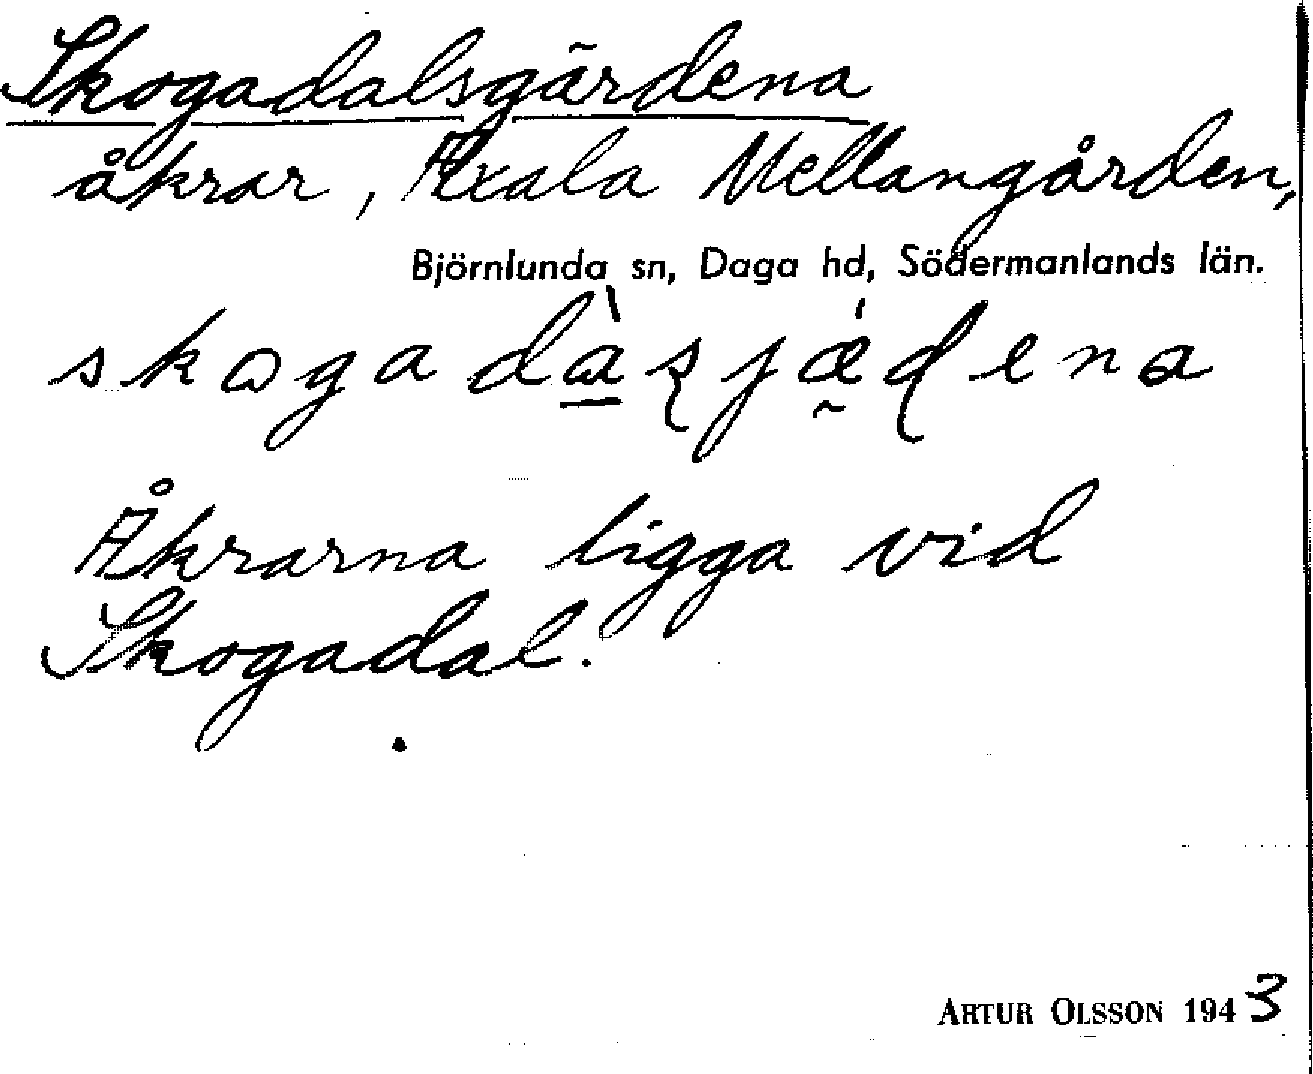 Skogadalsgärdena
åkrar, Axala Mellangården,
Björnlunda sn, Daga hd, Södermanlands län.
Åkrarna ligga vid
Skogadal.
ARTUR OLSSON 1943